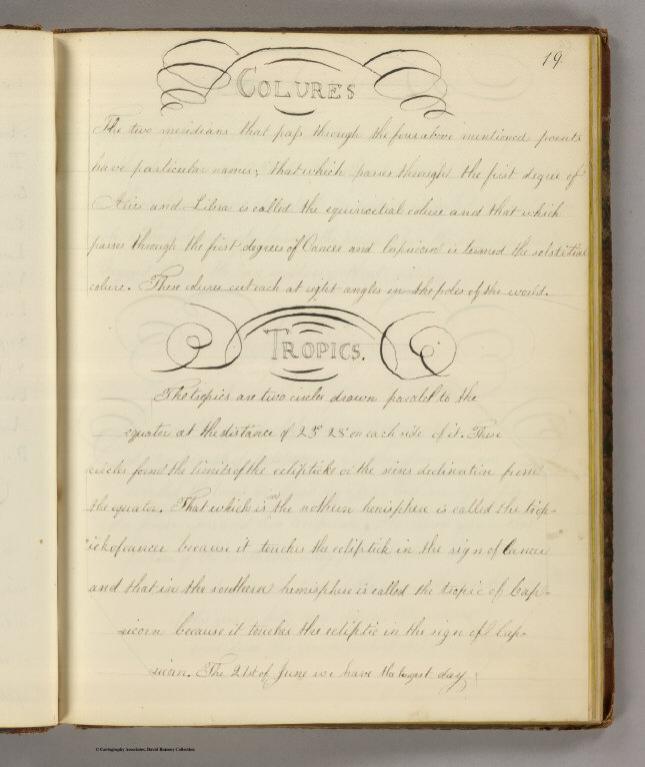 19
COLURES
The two meridians that pass through the four above mentioned points
have particular names; that which passes throught the first degree of
Aries and Libra is called the equinoctial colure and that which
passes through the first degrees of Cancer and Capricorn is termed the solstitial
colure. These colures cut each at right angles in the poles of the world.
TROPICS.
The tropics are two circles drawn paralel to the
equator at the distance of 23° 28' on each side of it. These
circles form the limits of the ecliptick or the declination from
the equator. That which is in the nothern hemisphere is called the trop-
ick of cancer because it touches the ecliptick in the sign of Cancer
and that in the southern hemisphere is called the tropic of Cap-
ricorn because it touches the ecliptic in the sign of Cap-
ricorn. The 21st of June we have the longest day
© Cartography Associates, David Rumsey Collection